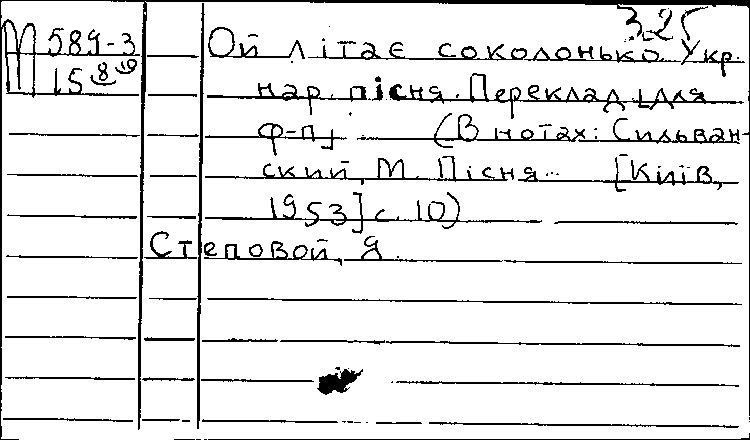 325
М 589-3 Ой літає соколонько. Укр.
15 нар. пісня. Переклад [для
ф-п] (В нотах: Сильван-
ский, М. Пісня... [Київ,
1953] с. 10)
Степовой, Я.